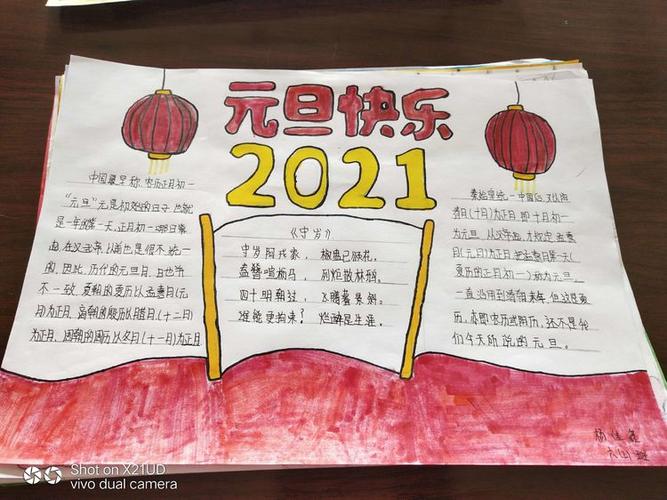 元旦快乐
2021
中国最早称农历正月初一
"元旦"元是初始的日子.也就
是一年的第一天,正月初一哪日算
由.在汉武帝以前也是很不统一
的.因此,历代的元旦月、日也并
不一致.夏朝的夏历以孟喜月(元
月)为正月.商朝的殷历以腊月(十二月)
为正月.周朝的周历以冬月(十一月)为正月
《守岁》
守岁阿戎家,椒盘已颂花。
盍簪喧枥马,列炬散林鸦。
四十明朝过,飞腾暮景斜。
谁能更拘束?烂醉是生涯。
秦始皇统一中国后,又以阴
春月(十月)为正月即十月初一
为元旦.从汉武帝.才规定孟喜
月(元月)为正月把孟喜月第一天(
夏历的正月初一)称为元旦,
一直沿用到清朝末年.但这是夏
历,亦即农历或阴历,还不是我
们今天所说的元旦。
Shot on X21UD
vivo dual camera